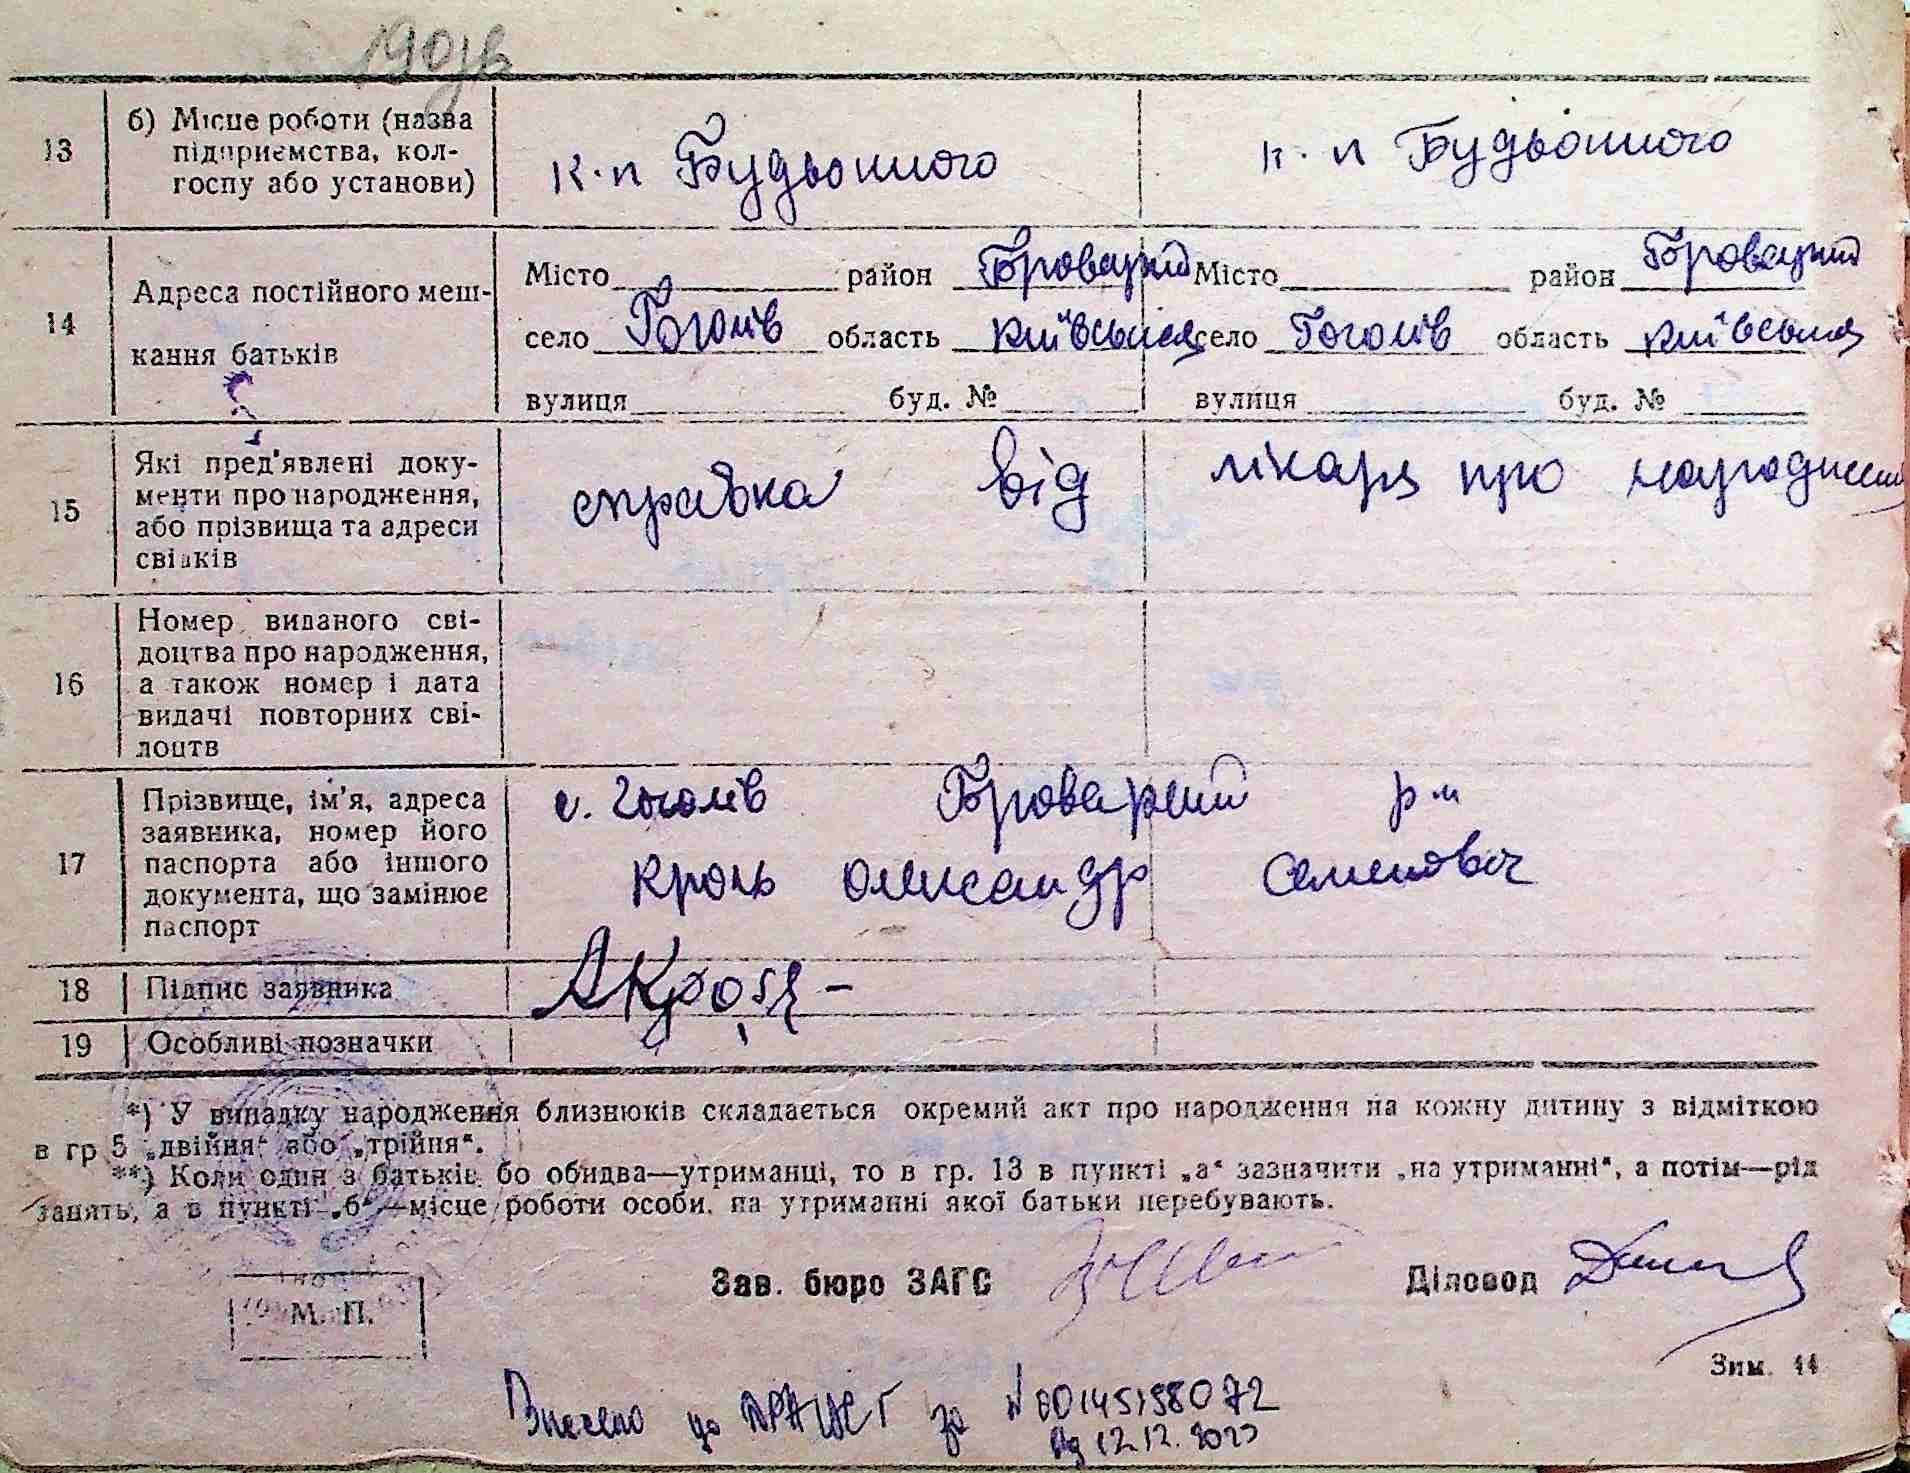 190зв
13
б) Місце роботи (назва
підприємства, кол-
госпу або установи)
к-п Будьонного
к-п Будьонного
14
Адреса постійного меш-
кання батьків
Місто район Броварський
село Гоголів область Київська
вулиця буд. №
Місто район Броварський
село Гоголів область Київська
вулиця буд. №
15
Які пред'явлені доку-
менти про народження,
або прізвища та адреси
свідків
справка від лікаря про народження
16
Номер виданого сві-
доцтва про народження,
а також номер і дата
видачі повторних сві-
доцтв
17
Прізвище, ім'я, адреса
заявника, номер його
паспорта або іншого
документа, що замінює
паспорт
с. Гоголів Броварський р-н
Кроль Олександр Семенович
18
Підпис заявника
АКроль
19
Особливі позначки
*) У випадку народження близнюків складається окремий акт про народження на кожну дитину з відміткою
в гр 5 „двійня" або „трійня".
**) Коли один з батьків бо обидва—утриманці, то в гр. 13 в пункті „а" зазначити „на утриманні", а потім—рід
занять, а в пункті „б"—місце роботи особи, на утриманні якої батьки перебувають.
Зав. бюро ЗАГС
Діловод
М. П.
Зим. 44
Внесено до ДРАЦСГ за №00145198072
від 12.12.2023